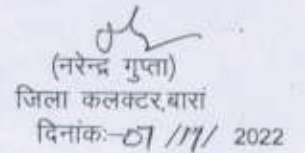 (नरेन्द्र गुप्ता)
जिला कलक्टर,बारां
दिनांक:-07/11/ 2022